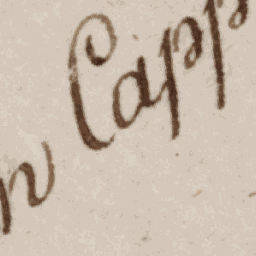 n Capp